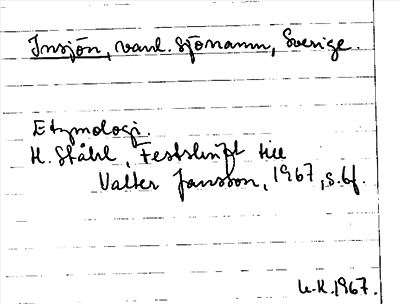 Insjön, vanl. sjönamn, Sverige.
Etymologi.
H. Ståhl, Festskrift till
Valter Jansson, 1967, s. 6f.
U.K. 1967.